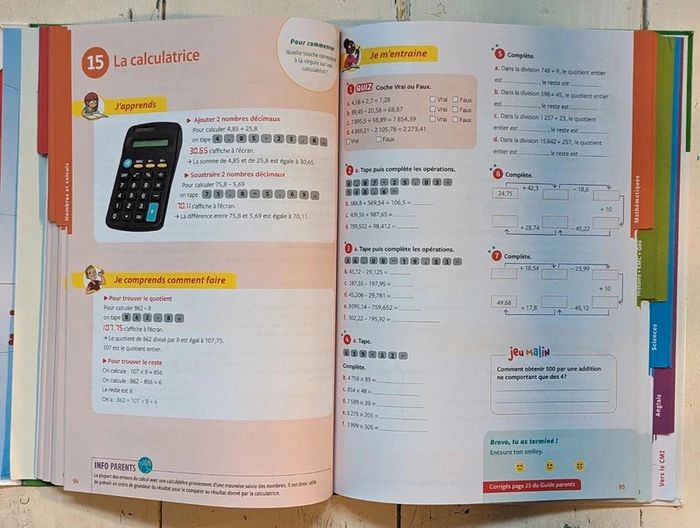 15 La calculatrice
Pour commencer
Quelle touche correspond
à la virgule sur une
calculatrice ?
J'apprends
Ajouter 2 nombres décimaux
Pour calculer 4,85 + 25,8
on tape 4 . 8 5 + 2 5 . 8 =
30.65 s'affiche à l'écran.
→ La somme de 4,85 et de 25,8 est égale à 30,65.
Soustraire 2 nombres décimaux
Pour calculer 75,8 – 5,69
on tape 7 5 . 8 – 5 . 6 9 =
70.11 s'affiche à l'écran.
→ La différence entre 75,8 et 5,69 est égale à 70,11.
Je comprends comment faire
Pour trouver le quotient
Pour calculer 862 ÷ 8
on tape 8 6 2 ÷ 8 =
107.75 s'affiche à l'écran.
→ Le quotient de 862 divisé par 8 est égal à 107,75.
107 est le quotient entier.
Pour trouver le reste
On calcule : 107 × 8 = 856
On calcule : 862 – 856 = 6
Le reste est 6.
On a : 862 = 107 × 8 + 6
INFO PARENTS
La plupart des erreurs de calcul avec une calculatrice proviennent d'une mauvaise saisie des nombres. Il est donc utile
de prévoir un ordre de grandeur du résultat pour le comparer au résultat donné par la calculatrice.
94
Nombres et calculs
Je m'entraine
1 QUIZ Coche Vrai ou Faux.
a. 4,58 + 2,7 = 7,28 Vrai Faux
b. 89,45 – 20,58 = 68,87 Vrai Faux
c. 7 895,5 + 58,89 = 7 854,39 Vrai Faux
d. 4 369,21 – 2 105,78 = 2 273,41
Vrai Faux
2 a. Tape puis complète les opérations.
b. 584,8 + 569,54 + 106,5 =
c. 409,56 + 987,65 =
d. 789,502 + 98,412 =
3 a. Tape puis complète les opérations.
b. 45,12 – 29,125 =
c. 287,55 – 197,95 =
d. 45,206 – 29,781 =
e. 8095,14 – 759,652 =
f. 302,22 – 195,92 =
4 a. Tape.
4 5 9 × 3 2 =
Complète.
b. 4 758 × 89 =
c. 854 × 48 =
d. 7 589 × 39 =
e. 6 275 × 205 =
f. 3 999 × 505 =
5 Complète.
a. Dans la division 748 ÷ 9, le quotient entier
est , le reste est .
b. Dans la division 598 ÷ 45, le quotient entier
est , le reste est .
c. Dans la division 1 257 ÷ 23, le quotient
entier est , le reste est .
d. Dans la division 15 842 ÷ 257, le quotient
entier est , le reste est .
6 Complète.
24,75 + 42,3 – 18,6
+ 10
+ 28,74 – 45,22
7 Complète.
+ 18,54 – 23,99
+ 10
49,68 + 17,8 – 45,12
jeu malin
Comment obtenir 500 par une addition
ne comportant que des 4 ?
Bravo, tu as terminé !
Entoure ton smiley.
Corrigés page 25 du Guide parents
95
Mathématiques
Sciences
Anglais
Vers le CM2